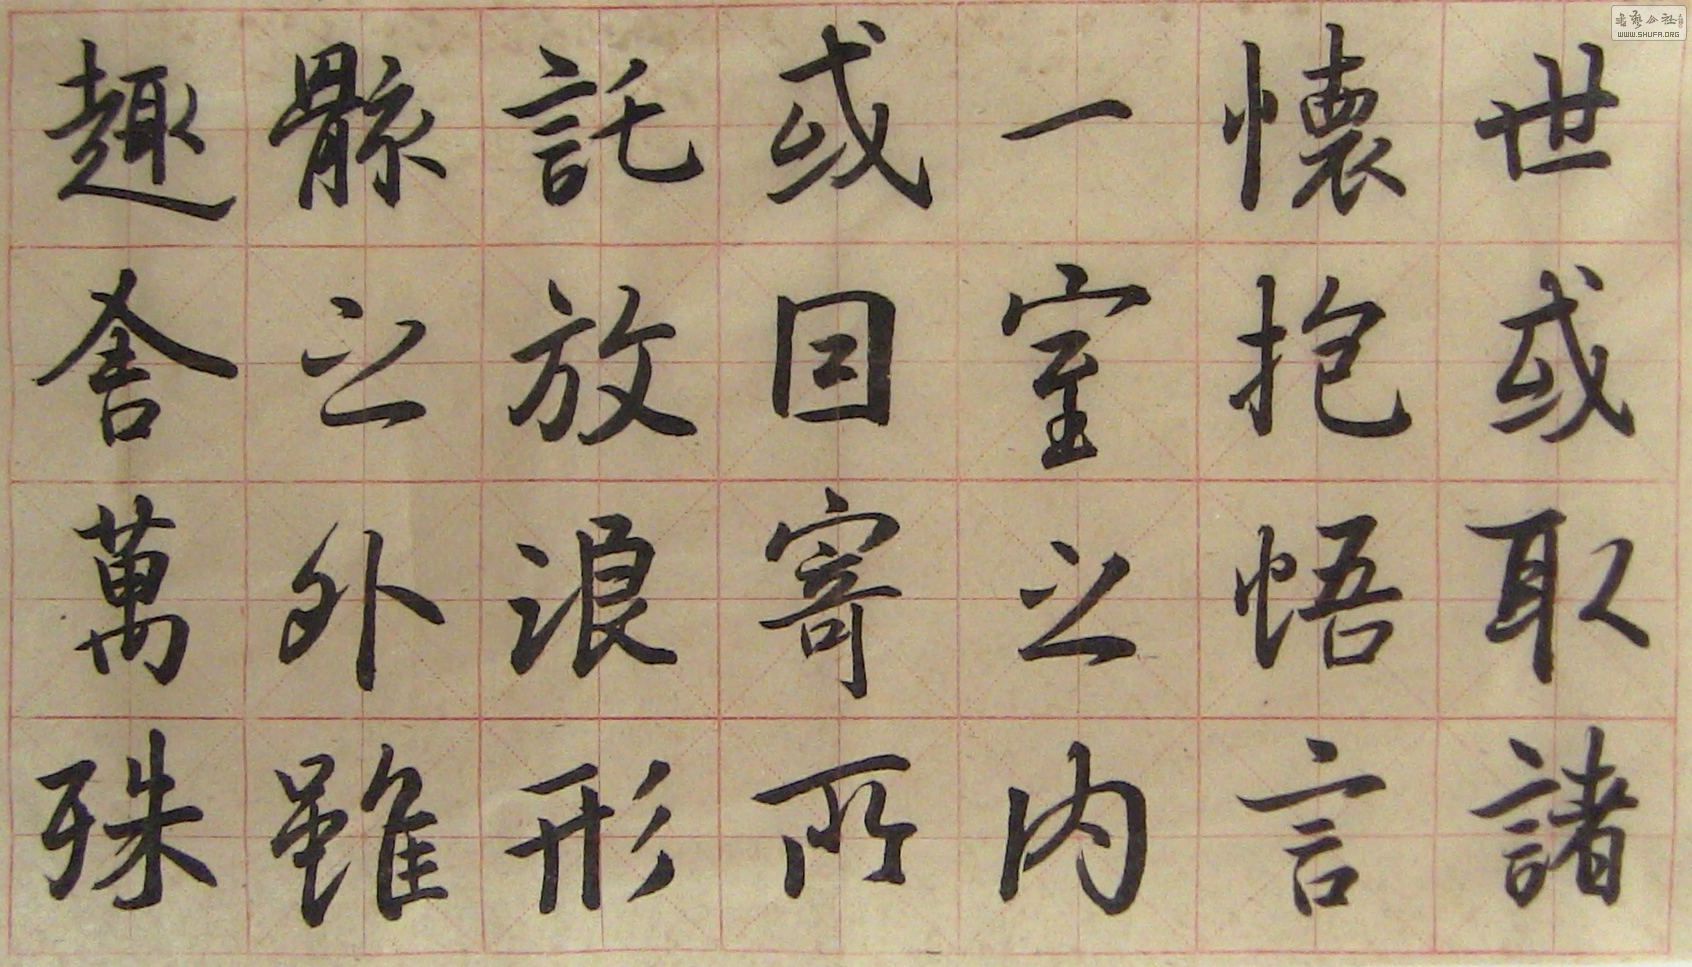 世或取諸
懷抱悟言
一室之内
或因寄所
託放浪形
骸之外雖
趣舍萬殊
書藝公社
WWW.SHUFA.ORG